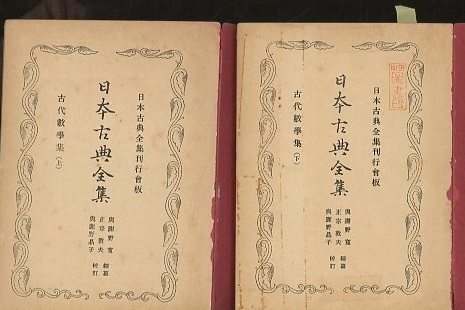 日本古典全集刊行會板
日本古典全集
古代數學集(上)
與謝野 寬
正宗敦夫 編纂
與謝野晶子 校訂
日本古典全集刊行會板
日本古典全集
古代數學集(下)
與謝野 寬
正宗敦夫 編纂
與謝野晶子 校訂